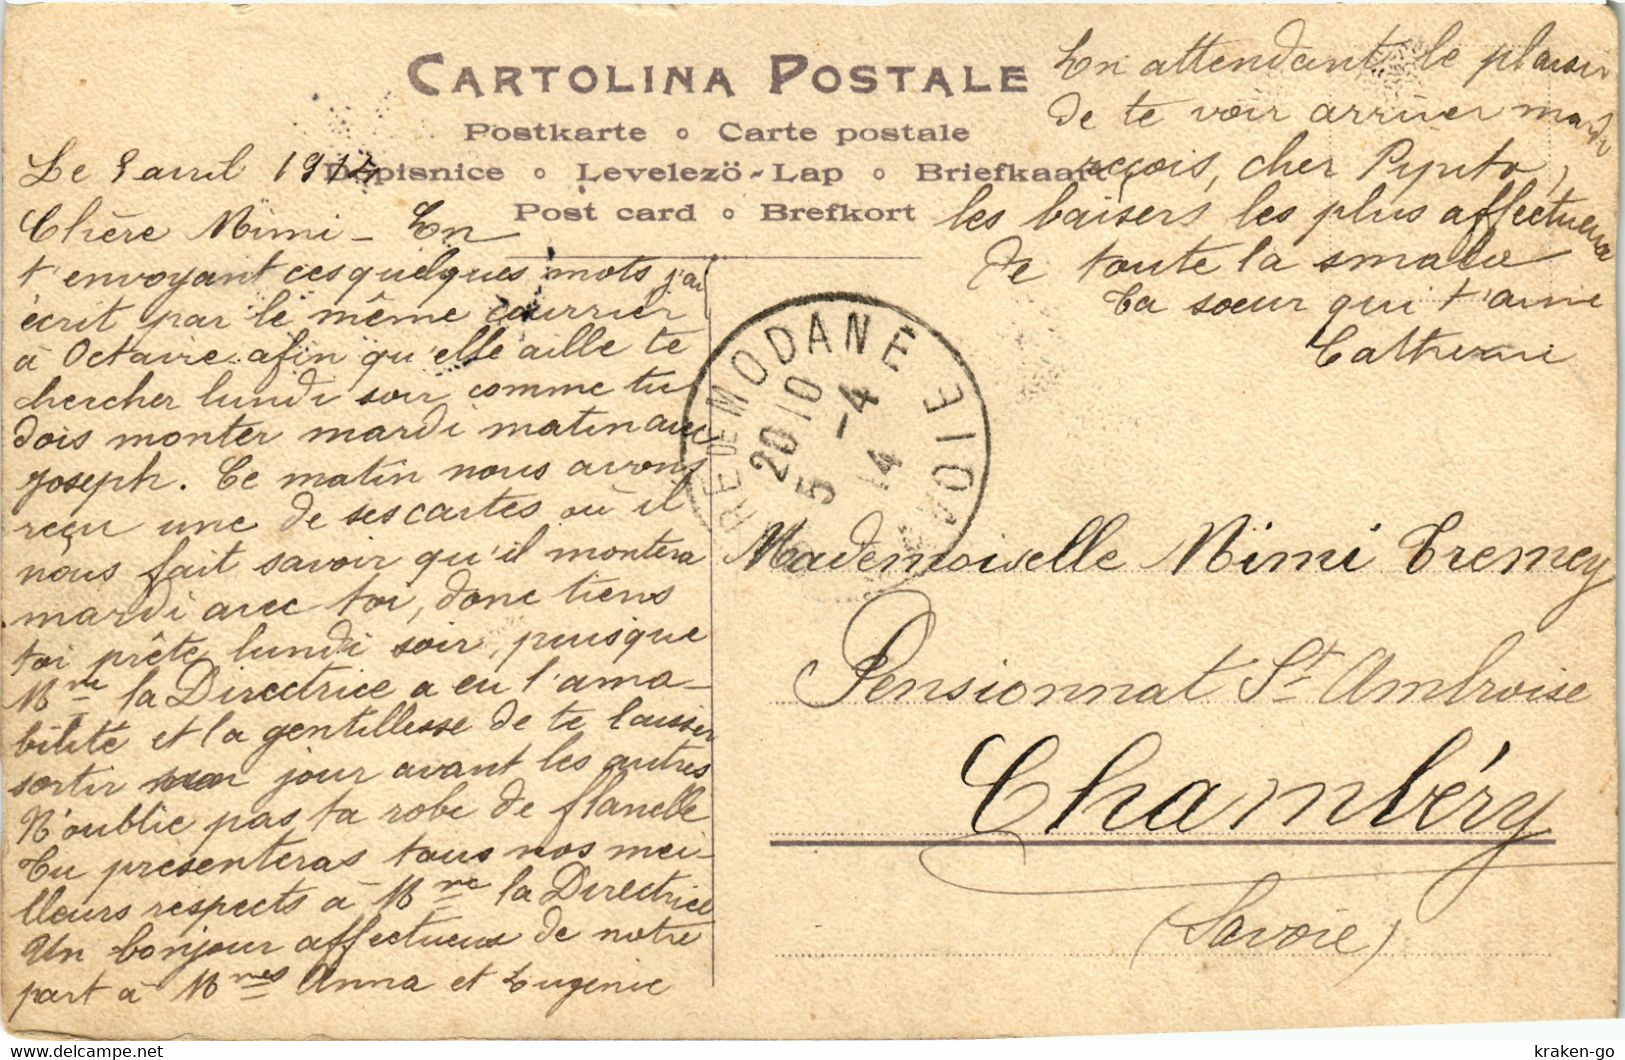 CARTOLINA POSTALE
Postkarte o Carte postale
Dopisnice o Levelezö-Lap o Briefkaart
Post card o Brefkort
Le avril 1914
Chère Mimi - En
t'envoyant ces quelques mots j'ai
écrit par le même courrier
à Octavie afin qu'elle aille te
chercher lundi soir comme tu
dois monter mardi matin avec
Joseph. Ce matin nous avons
reçu une de ses cartes où il
nous fait savoir qu'il montera
mardi avec toi, donc tiens
toi prête lundi soir, puisque
Mme la Directrice a eu l'ama-
bilité et la gentillesse de te laisser
sortir un jour avant les autres
N'oublie pas ta robe de flanelle
Tu présenteras tous nos mei-
lleurs respects à Mme la Directrice
Un bonjour affectueux de notre
part à Mmes Anna et Eugenie
En attendant le plaisir
de te voir arriver mardi
reçois, cher Pipito,
les baisers les plus affectueux
de toute la smala
Ta soeur qui t'aime
Catherine
RE DE MODANE
SAVOIE
20 10
5 -4
14
Mademoiselle Mimi Tremey
Pensionnat St Ambroise
Chambéry
(Savoie)
kraken-go